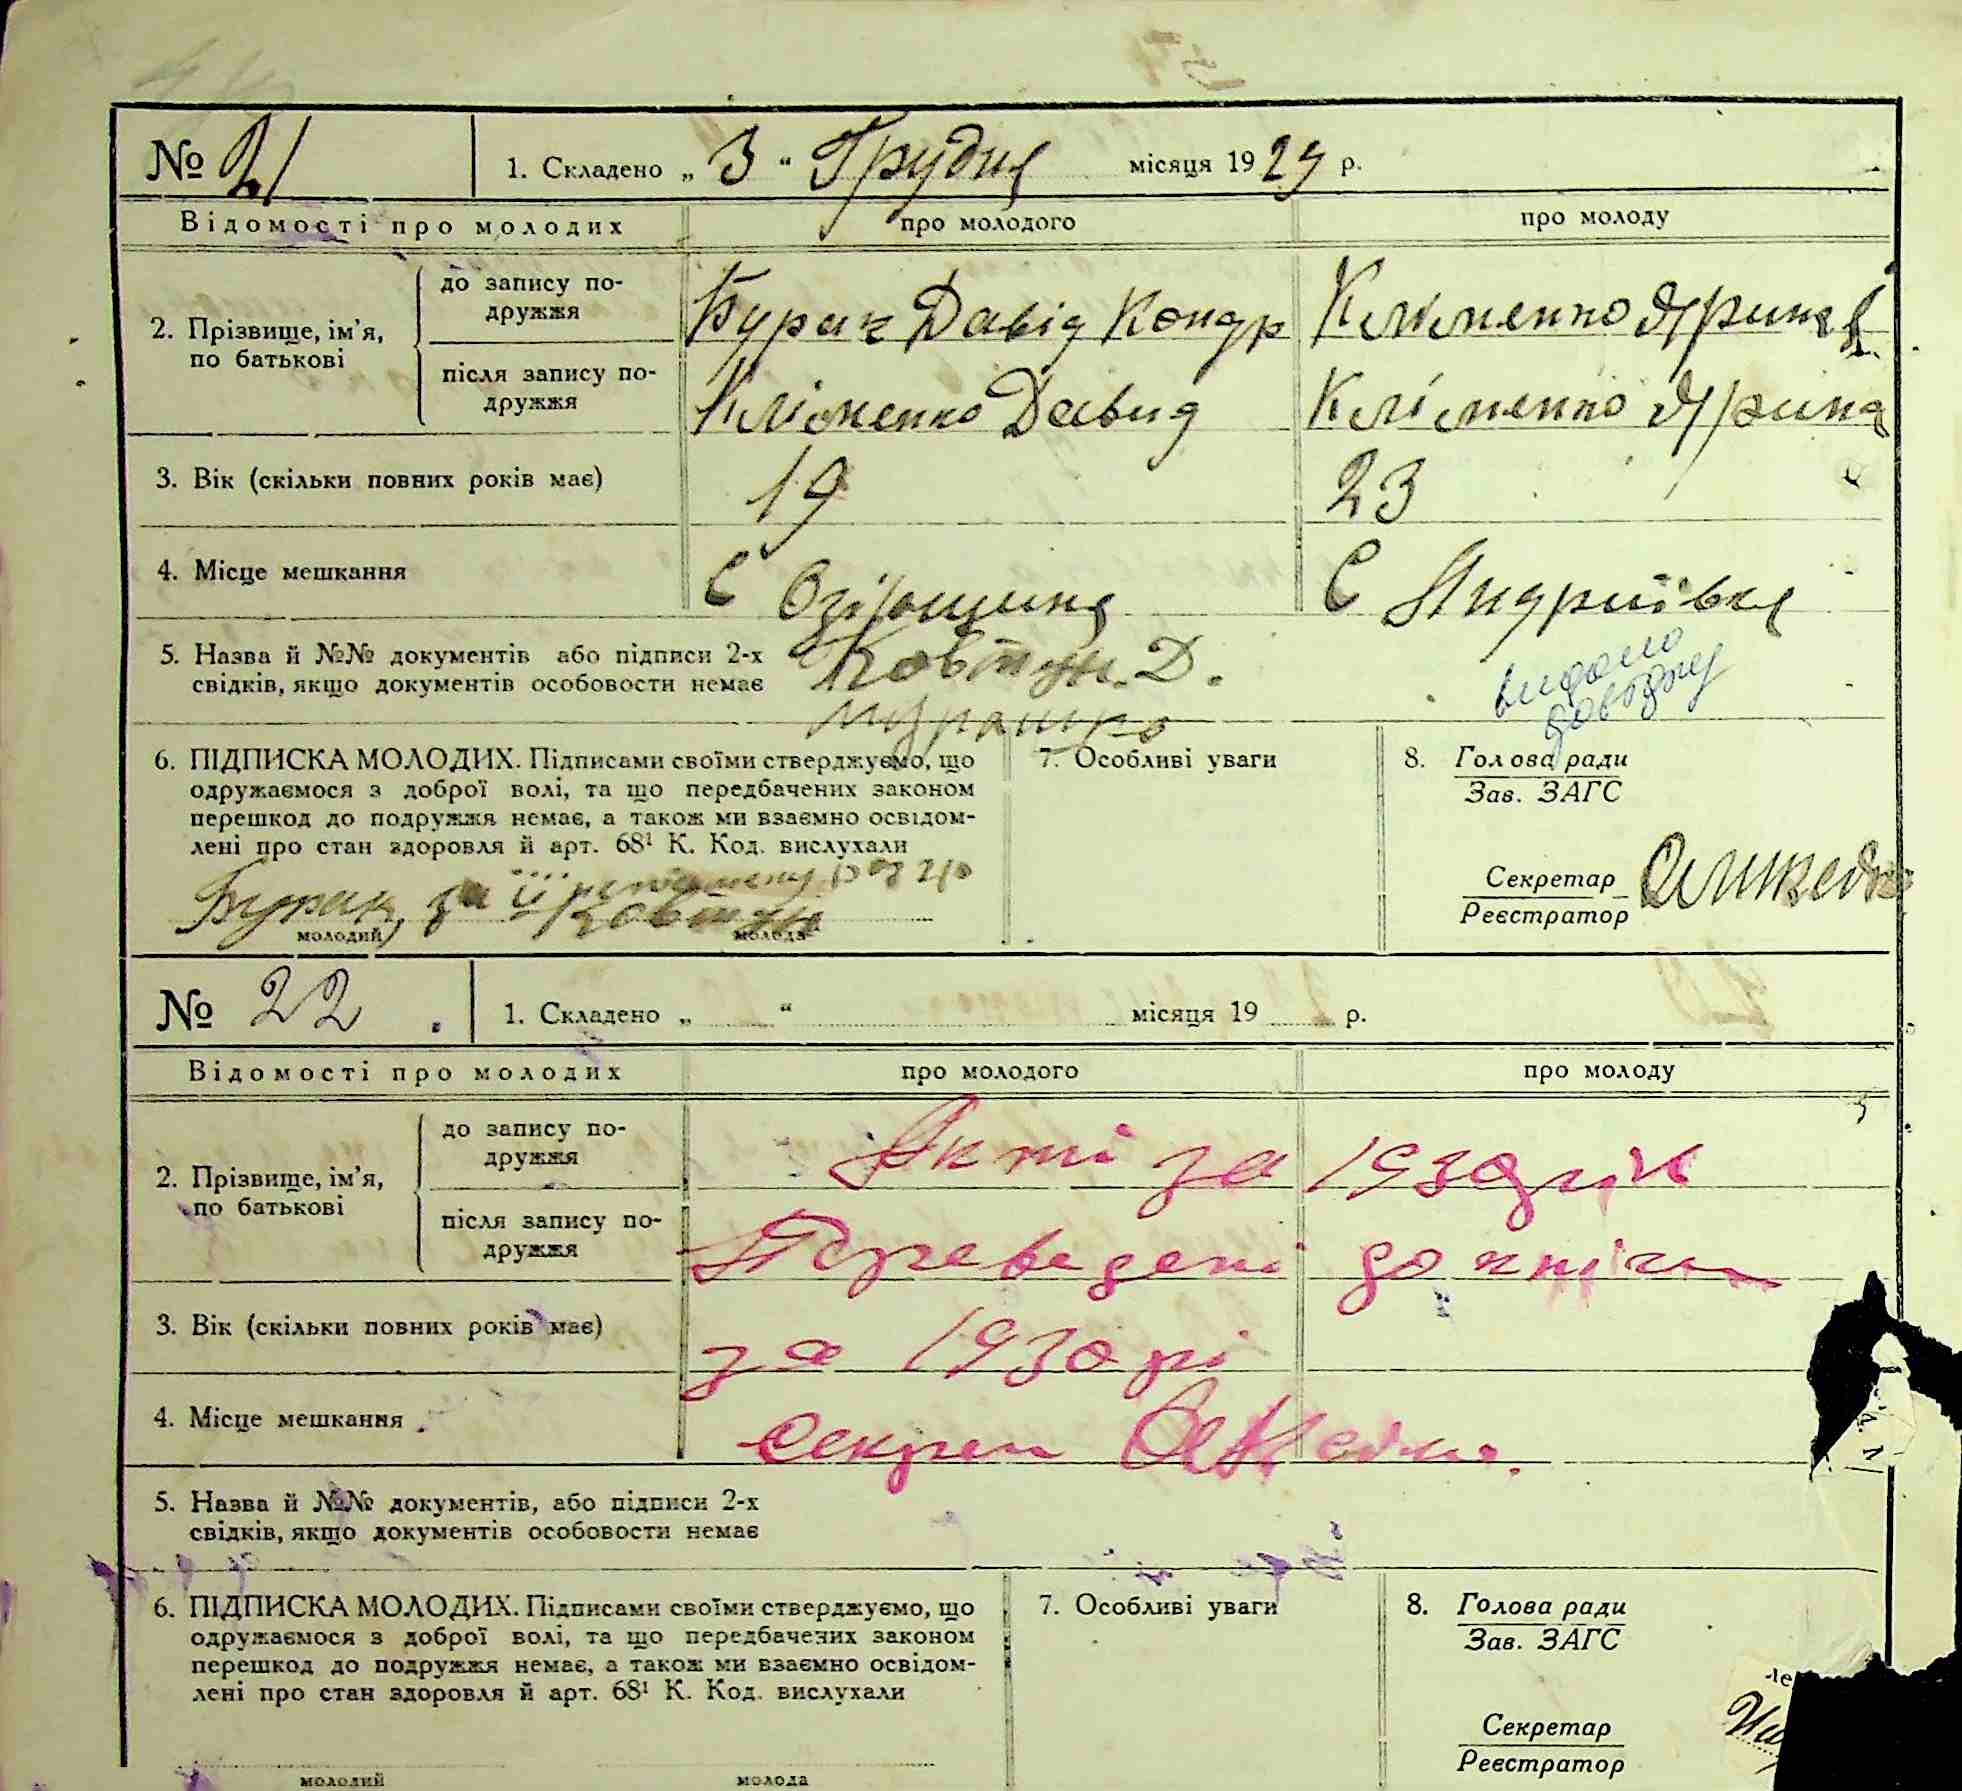 № 21
1. Складено „ 3 “ Грудня місяця 1929 р.
Відомості про молодих
про молодого
про молоду
2. Прізвище, ім’я, по батькові
до запису по-
дружжя
Бурак Давід Кондр
Кліменко Ярина
після запису по-
дружжя
Кліменко Давид
Кліменко Ярина
3. Вік (скільки повних років має)
19
23
4. Місце мешкання
С Озірщина
С Андриївка
5. Назва й №№ документів або підписи 2-х
свідків, якщо документів особовости немає
Ковтун. Д.
видано
довідку
6. ПІДПИСКА МОЛОДИХ. Підписами своїми стверджуємо, що
одружаємося з доброї волі, та що передбачених законом
перешкод до подружжя немає, а також ми взаємно освідом-
лені про стан здоровля й арт. 68¹ К. Код. вислухали
Бурак, за її
Ковтун
молодий
молода
7. Особливі уваги
8. Голова ради
Зав. ЗАГС
Секретар
Реєстратор
№ 22
1. Складено „ “ місяця 19 р.
Відомості про молодих
про молодого
про молоду
2. Прізвище, ім’я,
по батькові
до запису по-
дружжя
після запису по-
дружжя
Акти за 1930 рік
Переведені до книги
за 1930 рі
секрет
3. Вік (скільки повних років має)
4. Місце мешкання
5. Назва й №№ документів, або підписи 2-х
свідків, якщо документів особовости немає
6. ПІДПИСКА МОЛОДИХ. Підписами своїми стверджуємо, що
одружаємося з доброї волі, та що передбачених законом
перешкод до подружжя немає, а також ми взаємно освідом-
лені про стан здоровля й арт. 68¹ К. Код. вислухали
молодий
молода
7. Особливі уваги
8. Голова ради
Зав. ЗАГС
Секретар
Реєстратор